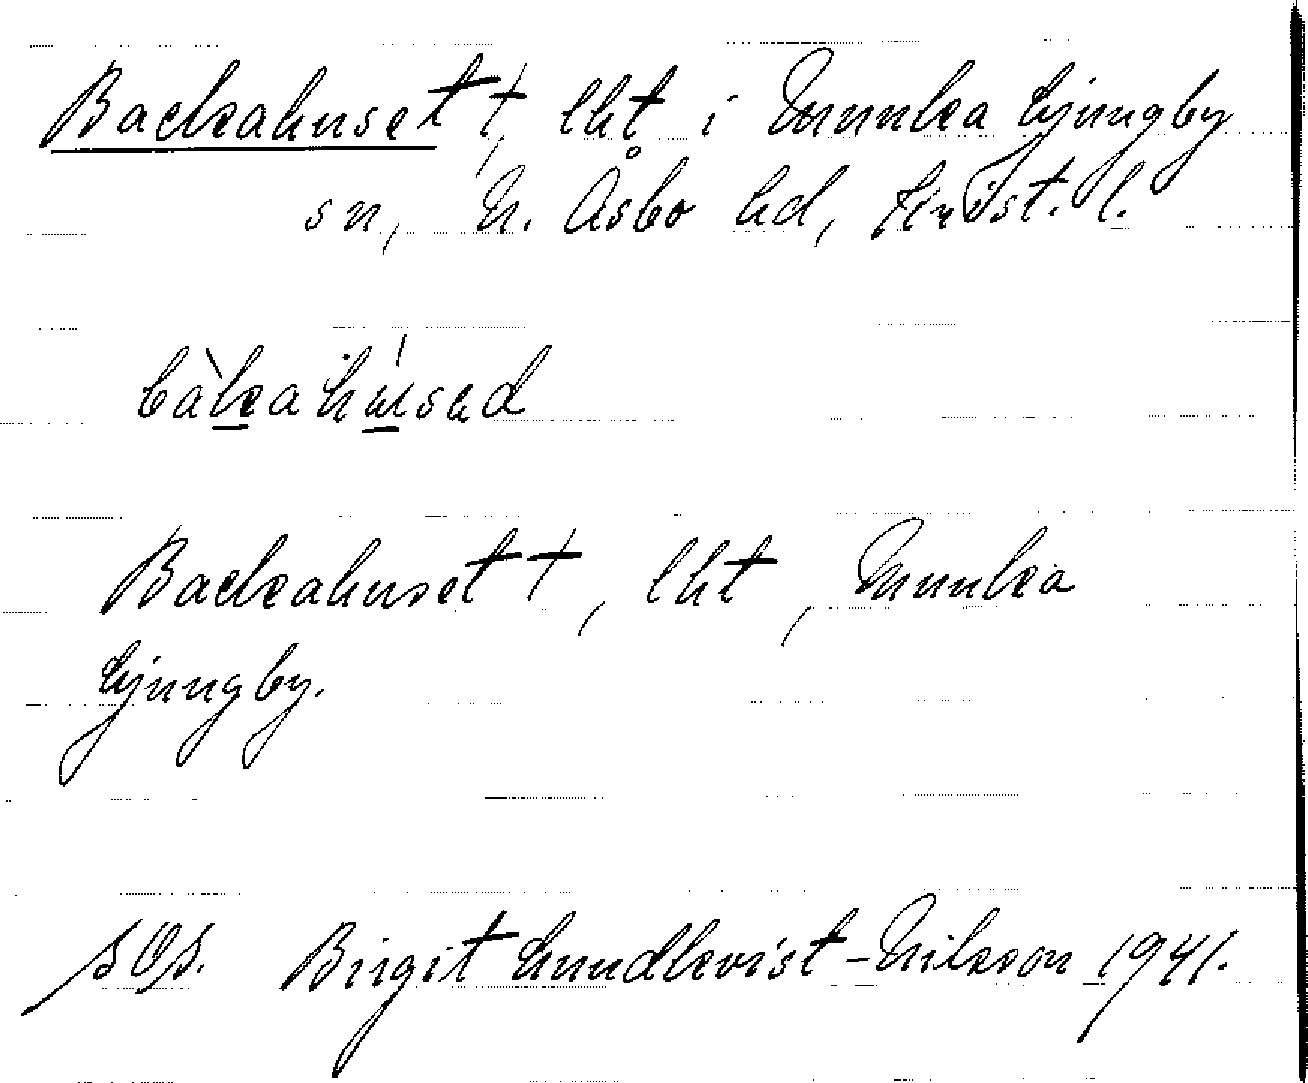 Backahuset †, lht i Munka Ljungby
sn, N. Åsbo hd, Krist. l.
bàkahúsed
Backahuset †, lht, Munka
Ljungby.
SOS. Birgit Lundkvist-Nilsson 1941.